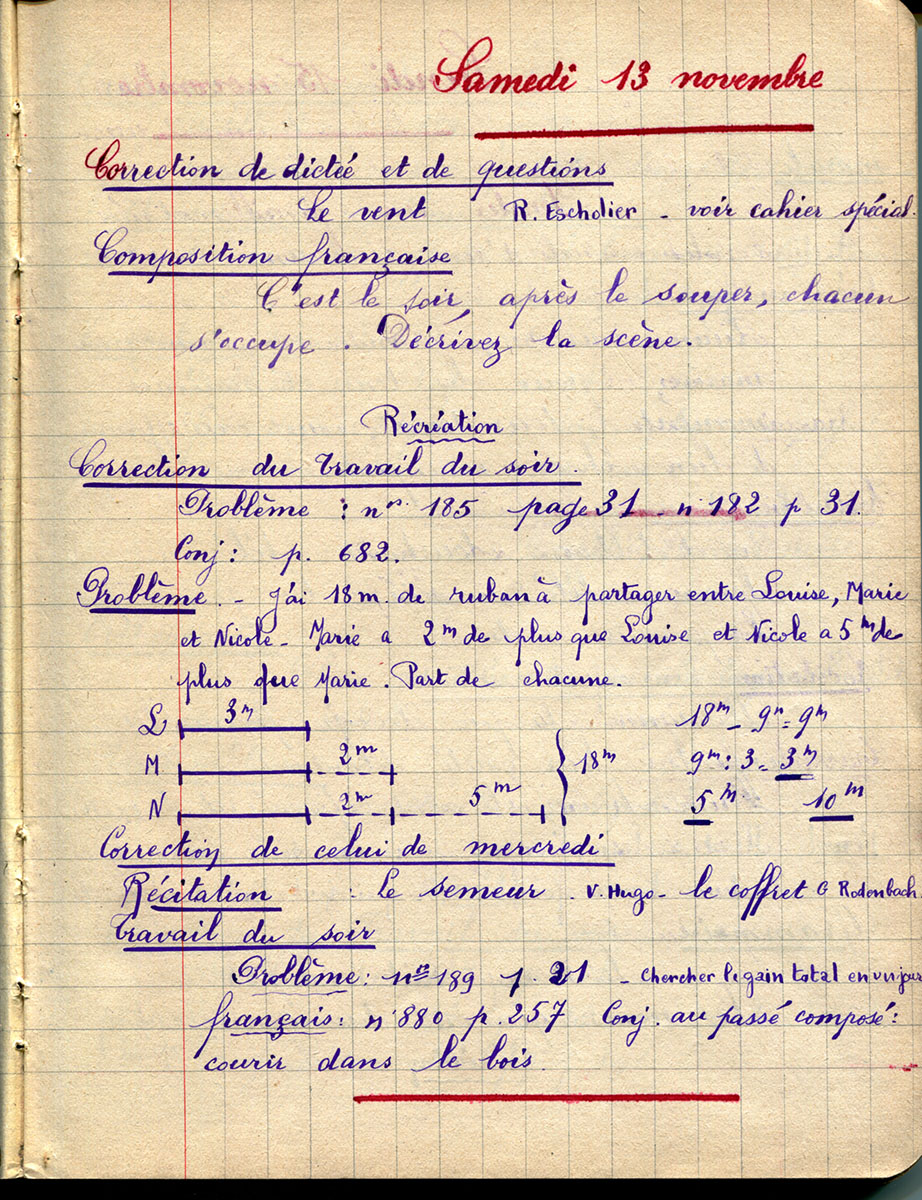 Samedi 13 novembre
Correction de dictée et de questions
Le vent R. Escholier - voir cahier spécial.
Composition française
C'est le soir, après le souper, chacun
s'occupe. Décrivez la scène.
Récréation
Correction du travail du soir.
Problème : nos 185 page 31 - n° 182 p 31.
Conj : p. 682.
Problème. - J'ai 18 m. de ruban à partager entre Louise, Marie
et Nicole - Marie a 2 m de plus que Louise et Nicole a 5 m de
plus que Marie. Part de chacune.
L 3 m 18 m - 9 m = 9 m
M 2 m } 18 m 9 m : 3 = 3 m
N 2 m 5 m 5 m 10 m
Correction de celui de mercredi
Récitation : Le semeur. V. Hugo - le coffret G Rodenbach
Travail du soir
Problème : nos 189 p. 21 - Chercher le gain total en un jour
français : n° 880 p. 257 Conj. au passé composé :
courir dans le bois.